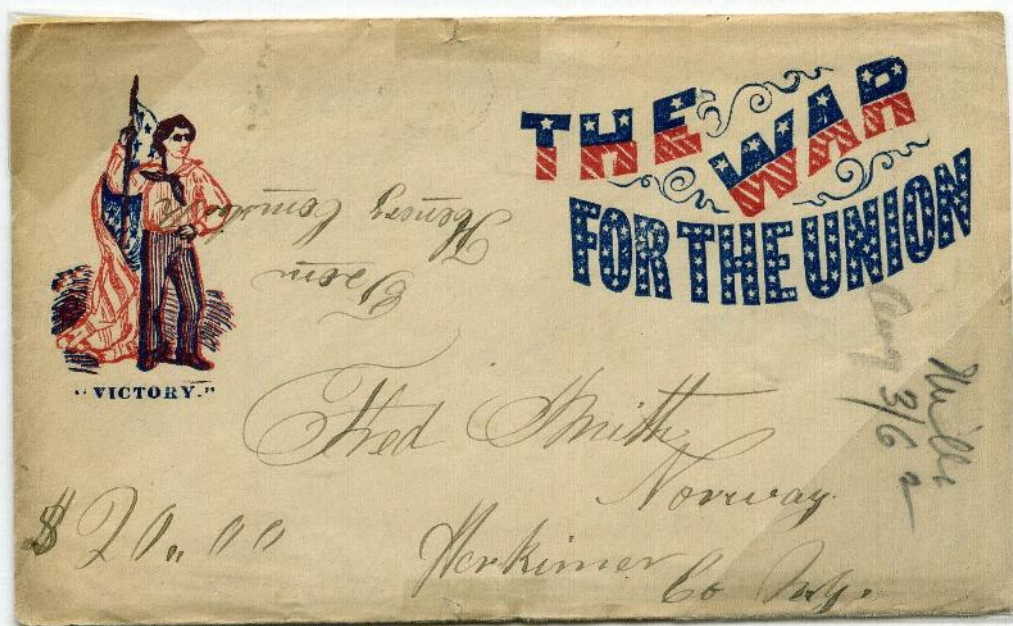 THE WAR
FOR THE UNION
"VICTORY."
From
Henry
Fred Smith
Norway
Herkimer
Co N.Y.
$ 20.00